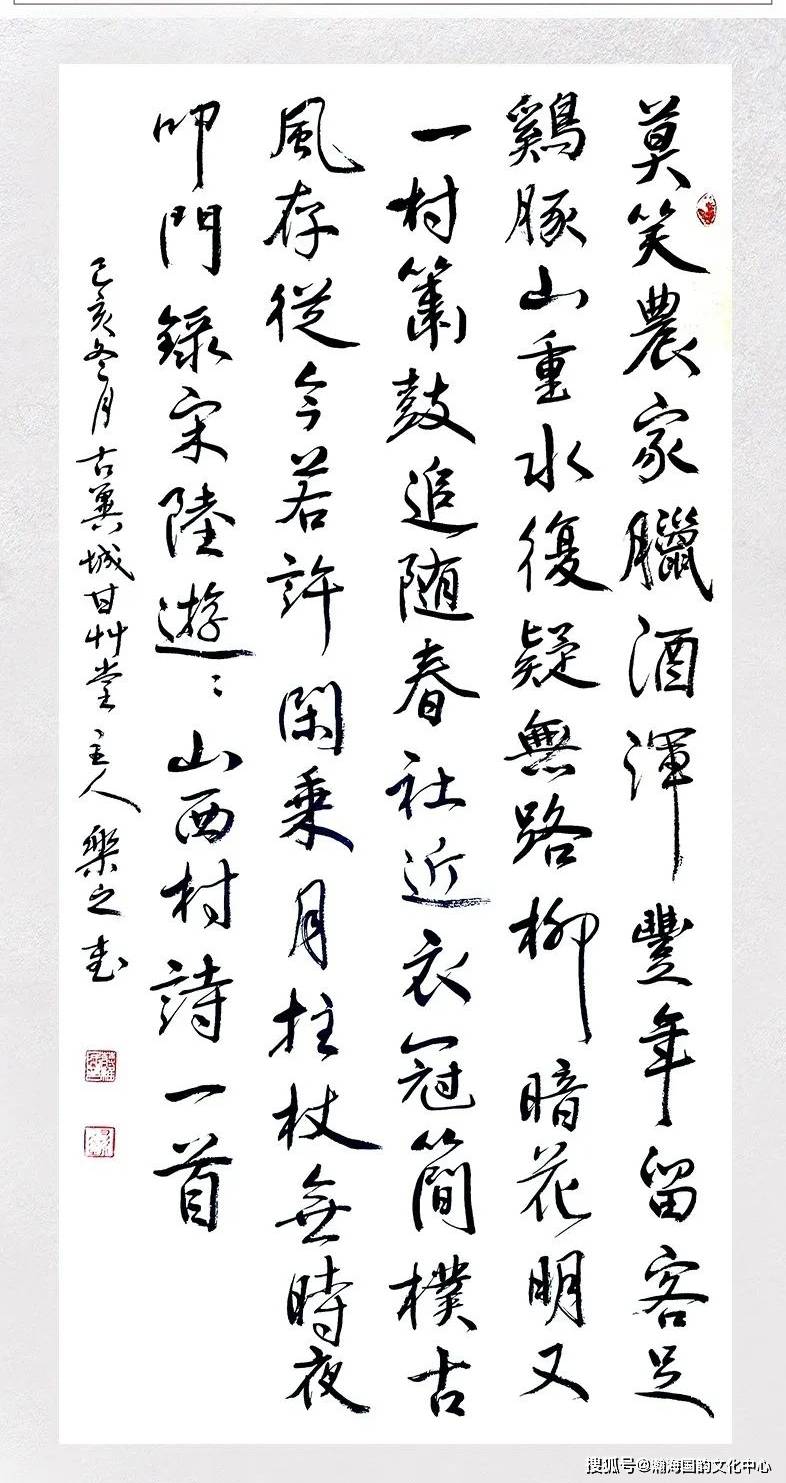 莫笑農家臘酒渾豐年留客足
鷄豚山重水復疑無路柳暗花明又
一村簫鼓追随春社近衣冠簡樸古
風存從今若許閑乘月拄杖無時夜
叩門錄宋陸遊〻山西村詩一首
己亥冬月古冀城甘艸堂主人樂之書
搜狐号@瀚海国韵文化中心